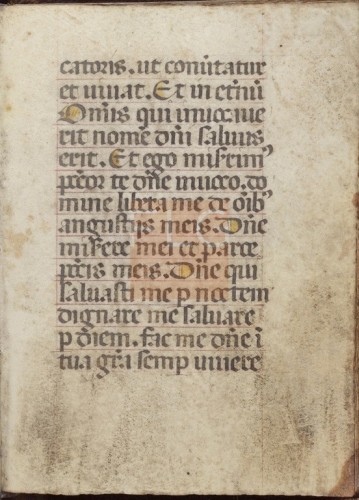 catoris. ut conv̄tatur
et vivat. Et in et̄nū
Om̄is qui invocave
rit nomē dn̄i salvus
erit. Et ego mis̄rim⁹
p̄ctor te dn̄e invoco. do
mine libera me de oīb⁹
angustijs meis. Dn̄e
mis̄ere mei et parce
p̄ctis meis. Dn̄e qui
salvasti me p noctem
dignare me salvare
p diem. fac me dn̄e ī
tua grā semp vivere